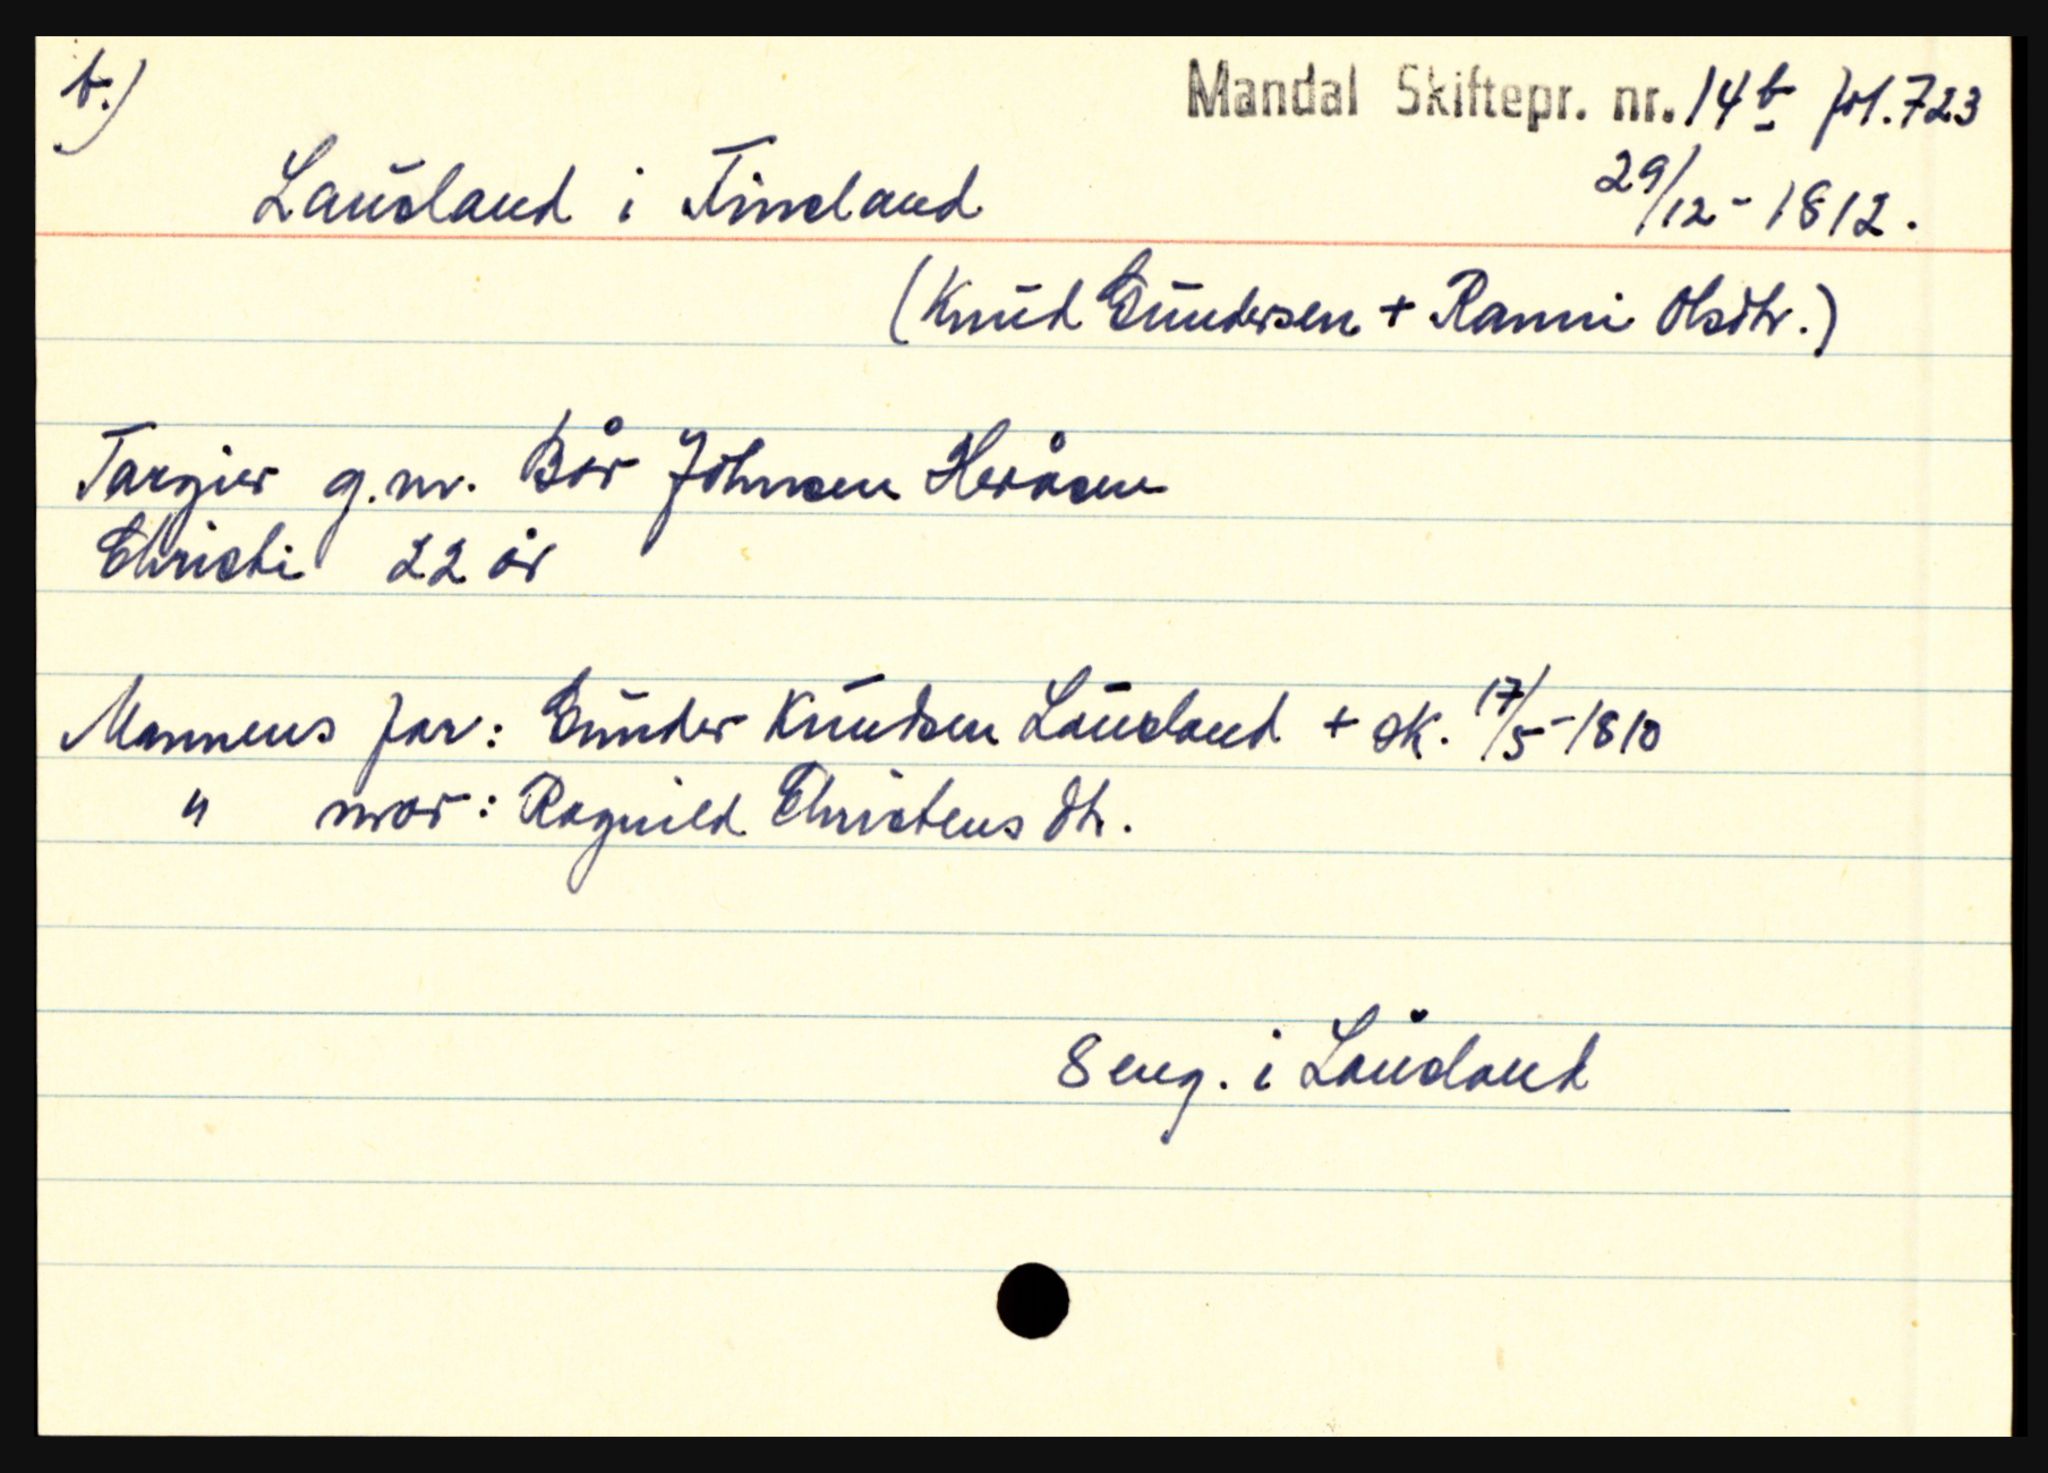 b.)
Mandal Skiftepr. nr. 14b fol. 723
29/12-1812.
Lausland i Finsland
(Knud Gundersen + Ranni Olsdtr.)
Targier g.m. Bår Johnsen Heråsen
Christi 22 år
Mannens far: Gunder Knudsen Lausland + sk. 17/5-1810
" mor: Ragnild Christens dtr.
8 eng. i Lausland